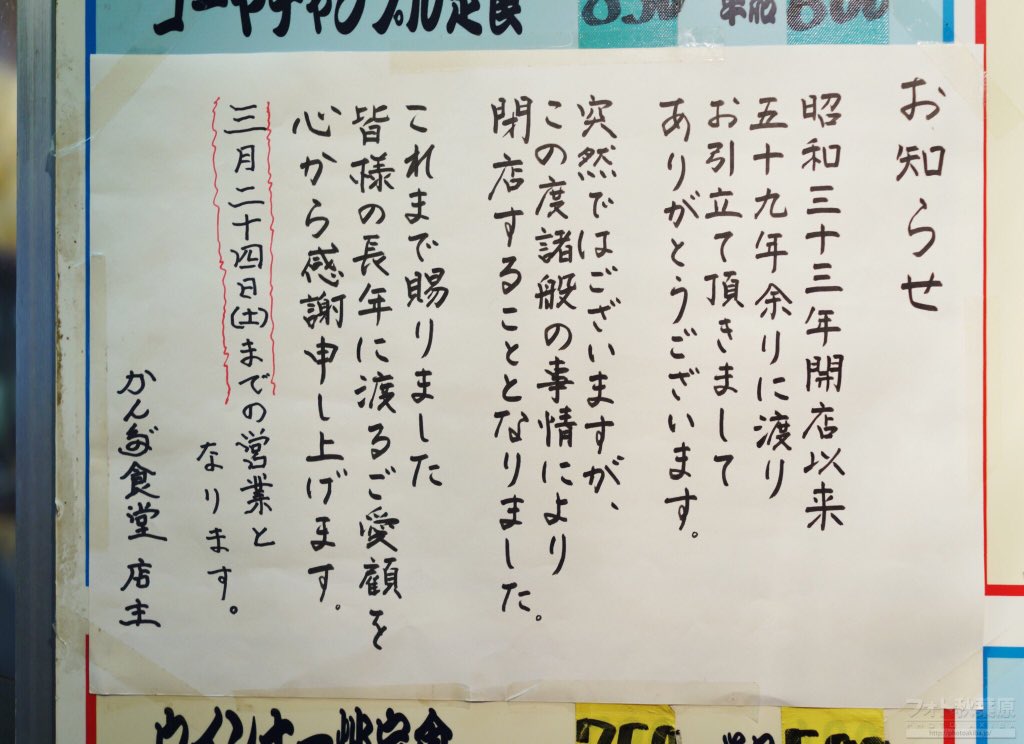 ゴーヤチャンプル定食
850
単品
600
お知らせ
昭和三十三年開店以来
五十九年余りに渡り
お引立て頂きまして
ありがとうございます。
突然ではございますが、
この度諸般の事情により
閉店することとなりました。
これまで賜りました
皆様の長年に渡るご愛顧を
心から感謝申し上げます。
三月二十四日(土)までの営業と
なります。
かんだ食堂 店主
ウインナー
定食
750
フォト秋葉原
http://photoakiba.jp/